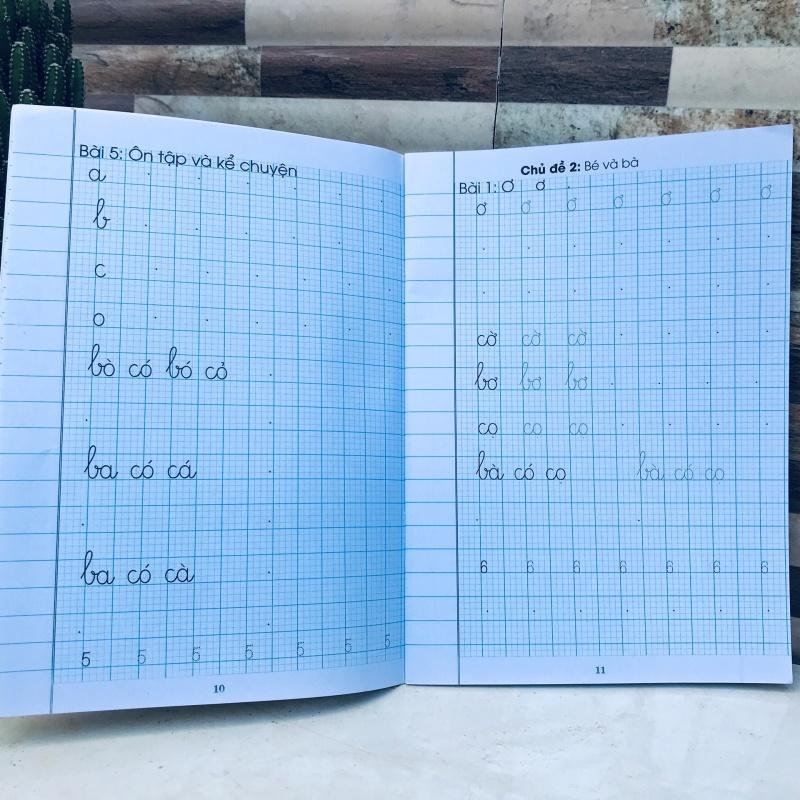 Bài 5: Ôn tập và kể chuyện
a
b
c
o
bò có bó cỏ
ba có cá
ba có cà
5 5 5 5 5 5 5
10
Chủ đề 2: Bé và bà
Bài 1: Ơ ơ
ơ ơ ơ ơ ơ ơ ơ
cờ cờ cờ
bơ bơ bơ
cọ cọ cọ
bà có cọ bà có cọ
6 6 6 6 6 6 6
11